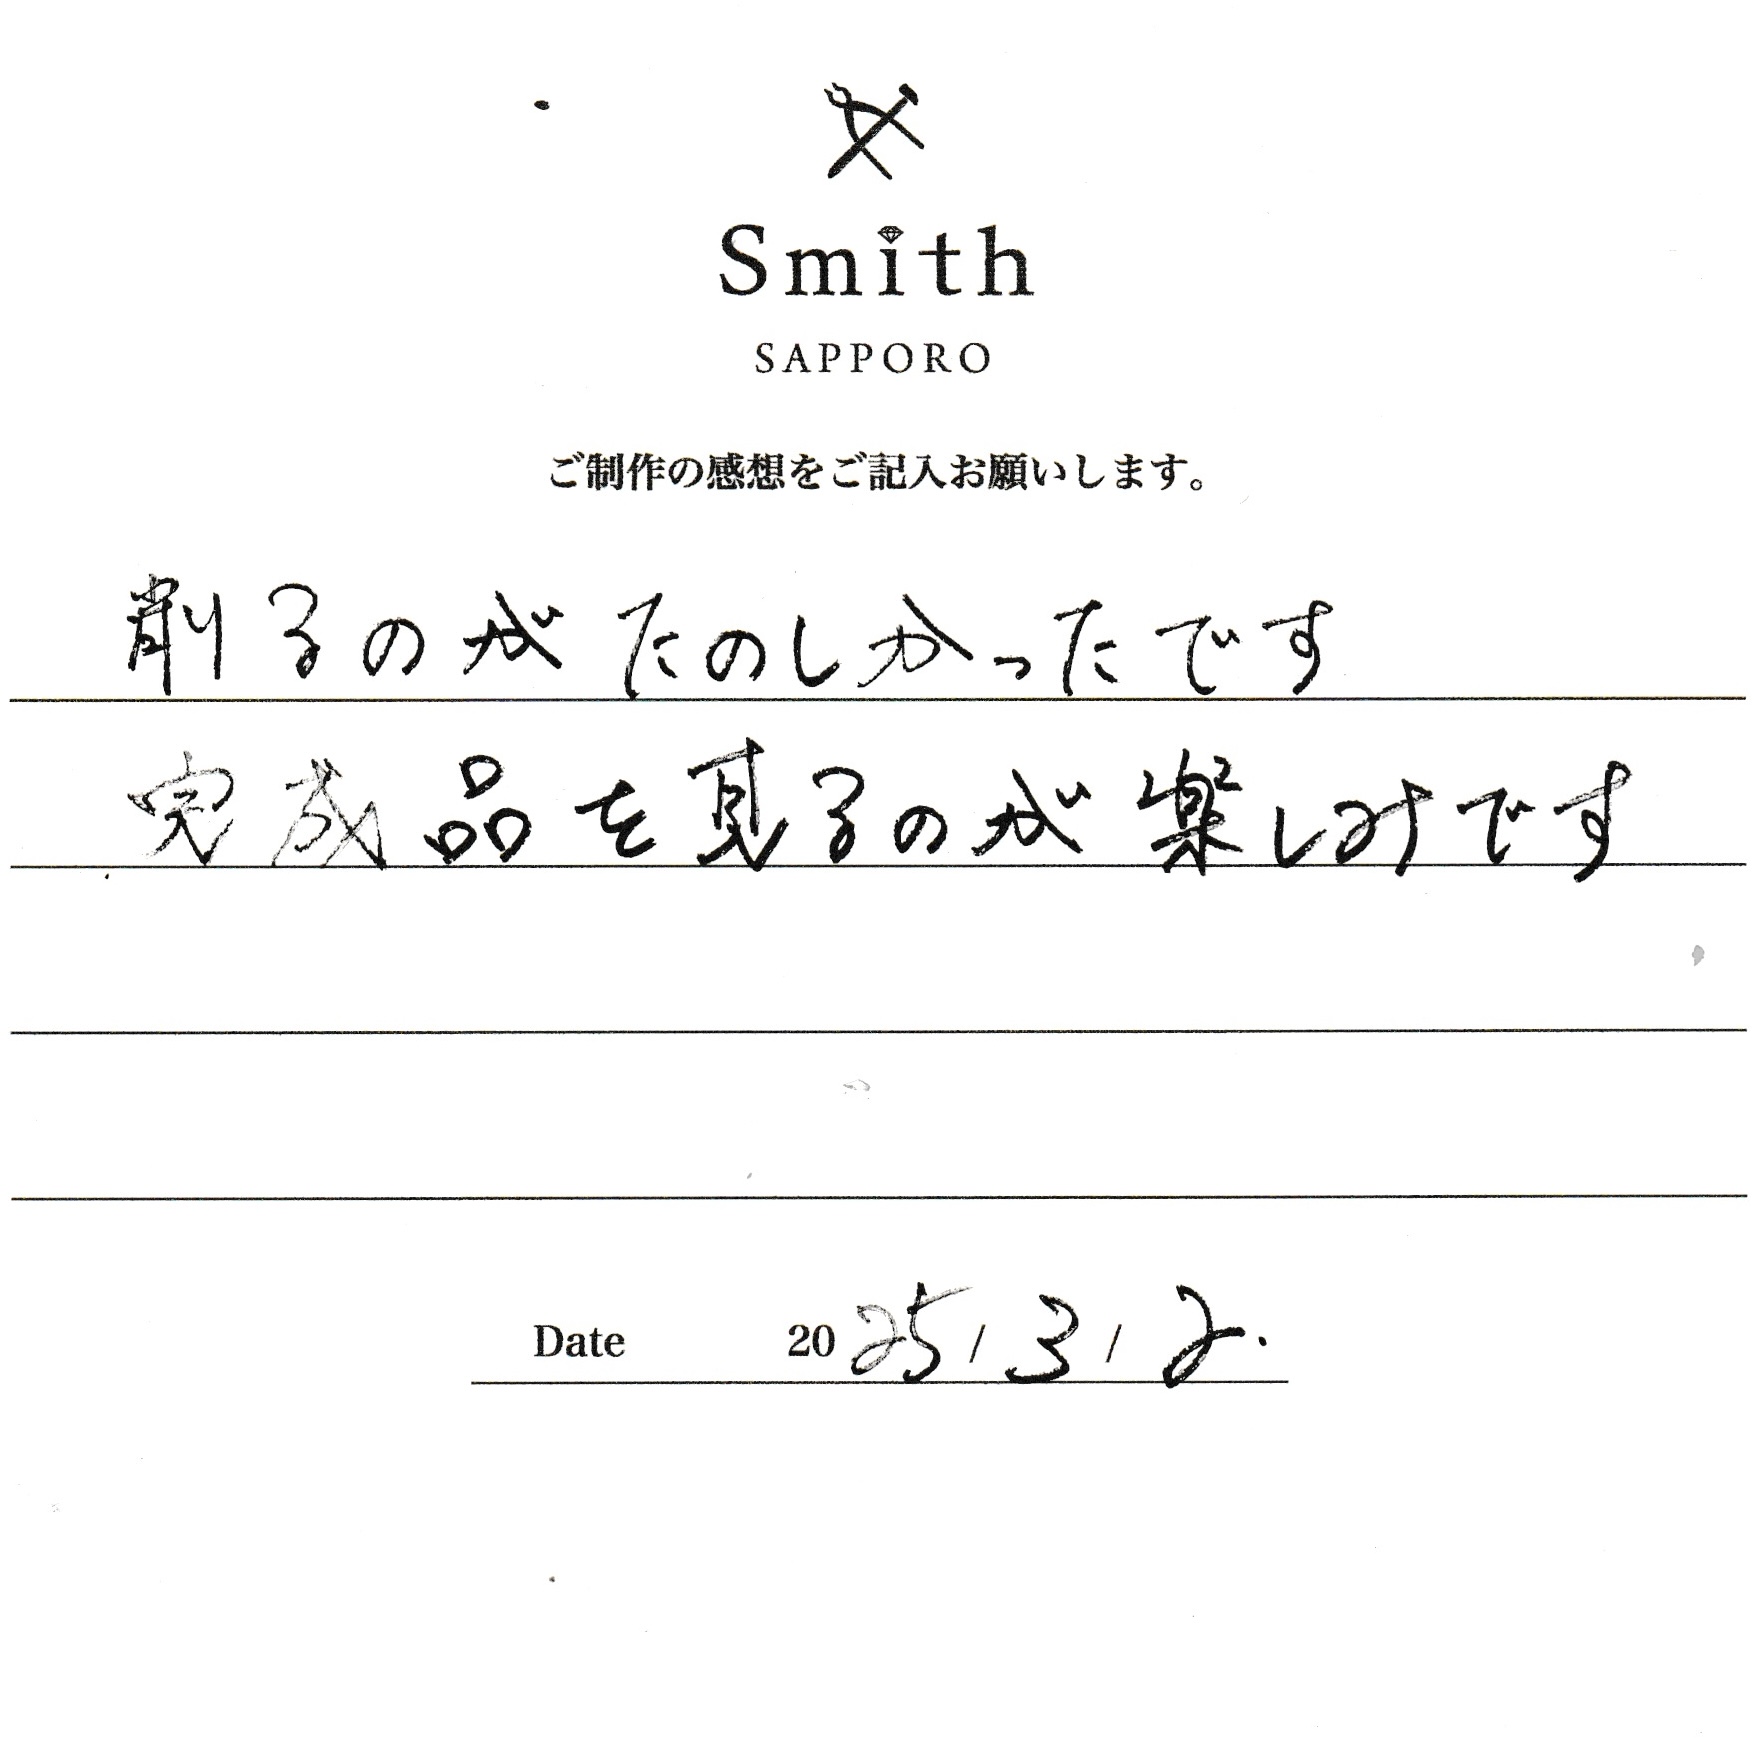 Smith
SAPPORO
ご制作の感想をご記入お願いします。
削るのがたのしかったです
完成品を見るのが楽しみです
Date 2025/3/2.